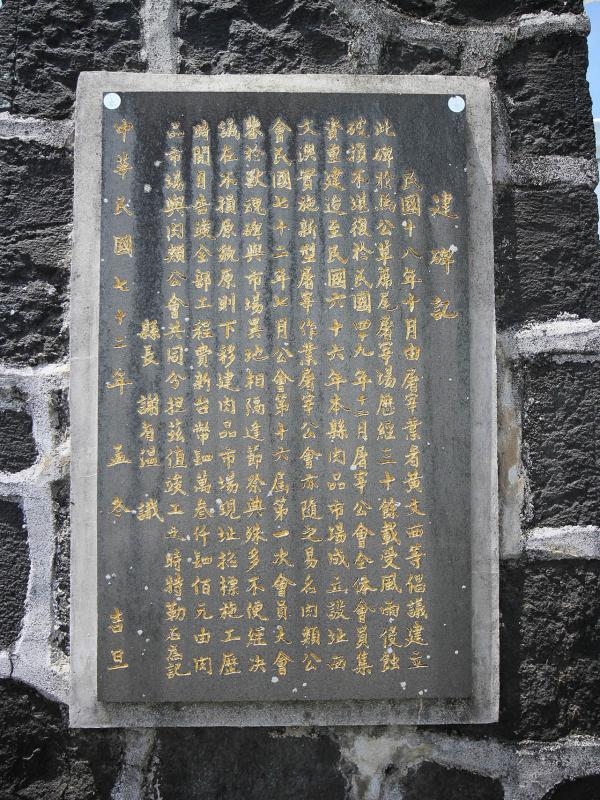 建碑記
民國十八年十月由屠宰業者黃文西等倡議建立
此碑於馬公草蓆尾屠宰場歷經三十餘載受風雨侵蝕
破損不堪復於民國四九年十二月屠宰公會全体會員集
資重建迨至民國六十六年本縣肉品市場成立設址西
文澳實施新型屠宰作業屠宰公會亦隨之易名肉類公
會民國七十二年七月公會第十六屆第一次會員大會
鑒於獸魂碑與市場異地相隔逢節祭典殊多不便經決
議在不損原貌原則下移建肉品市場現址招標施工歷
時閱月告竣全部工程費新台幣萬叁仟佰元由肉
品市場與肉類公會共同分担茲值竣工之時特勒石為記
縣長 謝有溫 識
中華民國七十二年 孟冬 吉旦